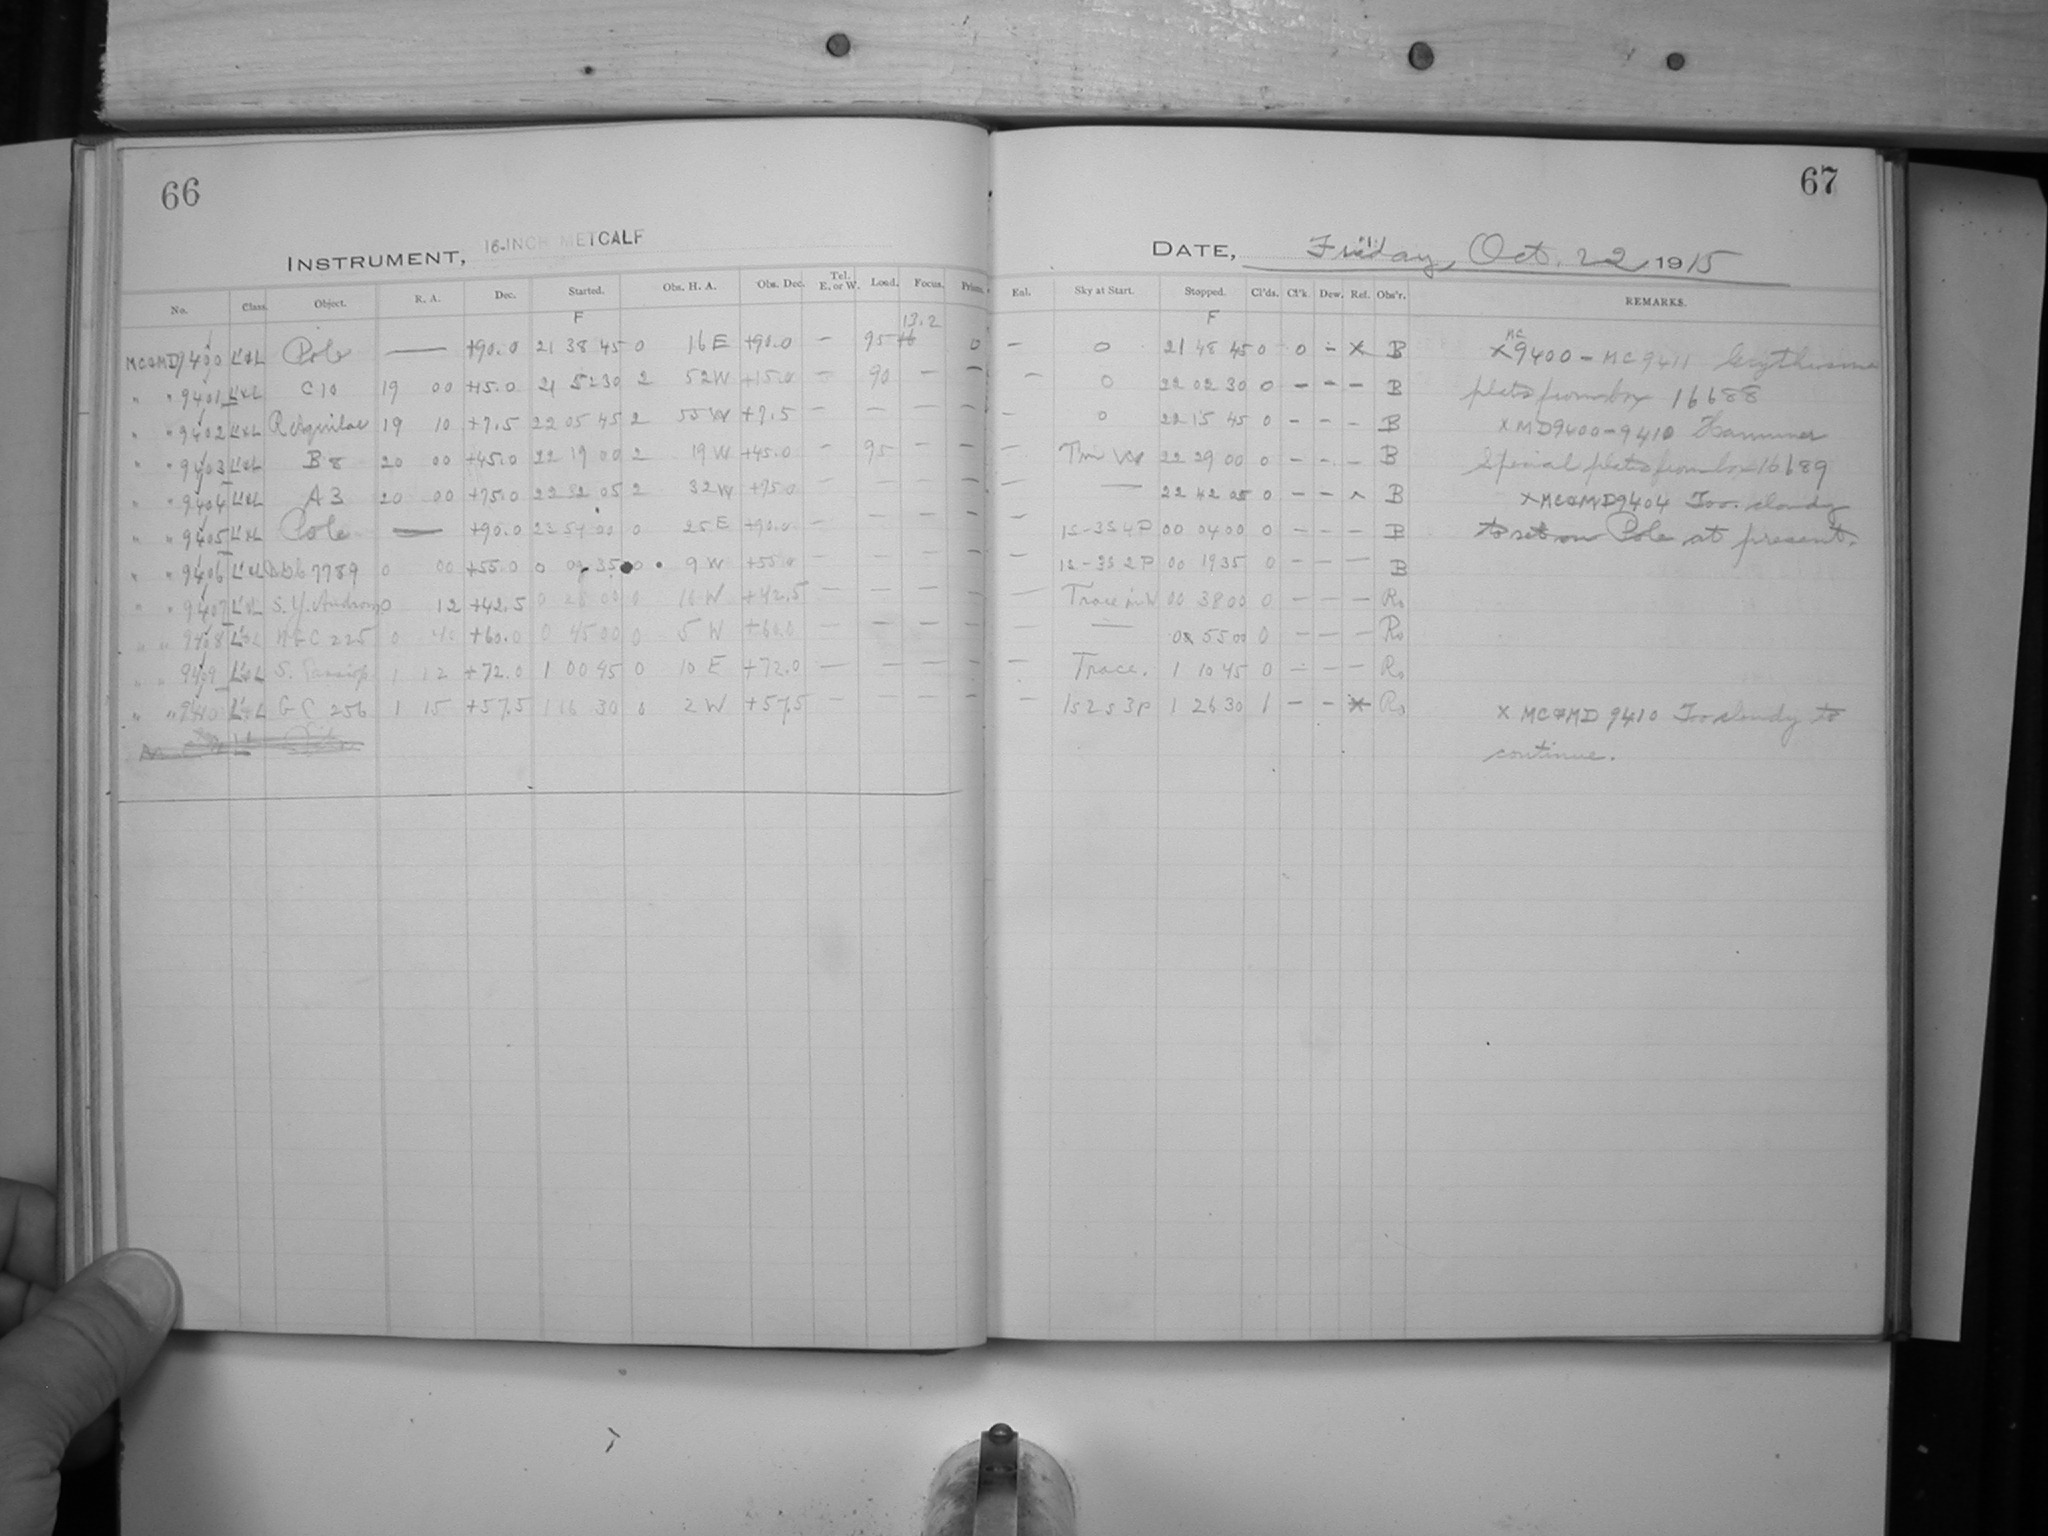 66
67
INSTRUMENT, 16-INCH METCALF
DATE, Friday, Oct. 22 1915
No. Class. Object. R. A. Dec. Started. Obs. H. A. Obs. Dec. Tel. E. or W. Load. Focus. Prisms. Enl. Sky at Start. Stopped. Cl'ds. Cl'k. Dew. Ref. Obs'r. REMARKS.
F 13.2 F
MC&MD9400 Pole — +90.0 21 38 45 0 16 E +90.0 — 95 0 — 0 21 48 45 0 0 – X B X MC 9400 – MC 9411 Erythrosine
" " 9401 C10 19 00 +15.0 21 52 30 2 52 W +15.0 — 90 — — — 0 22 02 30 0 – – – B plates from box 16688
" " 9402 R Aquilae 19 10 +7.5 22 05 45 2 55 W +7.5 — — — — — 0 22 15 45 0 – – – B X MD9400–9410 Hammer
" " 9403 B8 20 00 +45.0 22 19 00 2 19 W +45.0 — 95 — — — 22 29 00 0 – – – B Special plates from box 16689
" " 9404 A3 20 00 +75.0 22 32 05 2 32 W +75.0 — — — — — — 22 42 05 0 – – B X MC&MD9404 Too cloudy
" " 9405 Pole — +90.0 23 54 00 0 25 E +90.0 — — — — — 1S–3S 4P 00 04 00 0 – – – B to set on Pole at present.
" " 9406 7789 0 00 +55.0 0 09 35 0 9 W +55.0 — — — — — 1S–3S 2P 00 19 35 0 – – — B
" " 9407 0 12 +42.5 0 28 00 0 16 W +42.5 — — — — — Trace in W 00 38 00 0 – – – Ro
" " 9408 NGC 225 0 40 +60.0 0 45 00 0 5 W +60.0 — — — — — — 55 00 0 – – – Ro
" " 9409 S. 1 12 +72.0 1 00 45 0 10 E +72.0 — — — — — Trace. 1 10 45 0 – – – Ro
" " 9410 GC 256 1 15 +57.5 1 16 30 0 2 W +57.5 — — — — — 1s 2s 3p 1 26 30 1 – – X Ro X MC&MD 9410 Too cloudy to
continue.